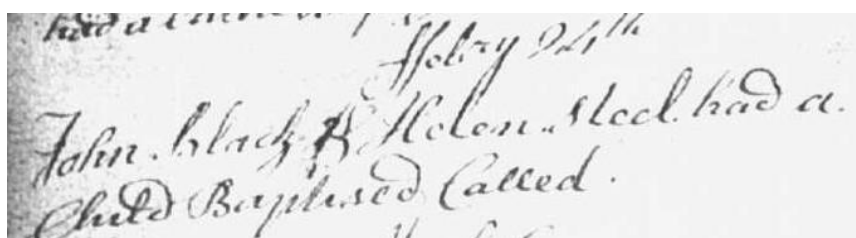 had a
ffebry 24th
John black & Helen Steel had a
Child Baptised Called